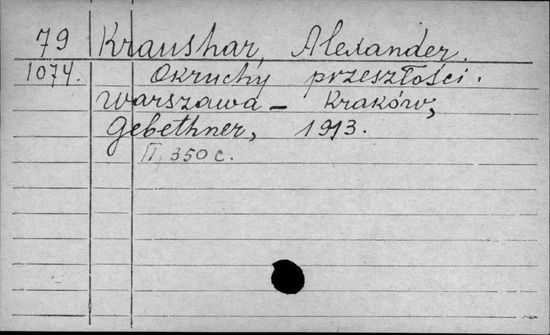 79 Kraushar, Alexander.
1074. Okruchy przeszłości.
Warszawa – Kraków,
Gebethner, 1913.
II, 350 c.